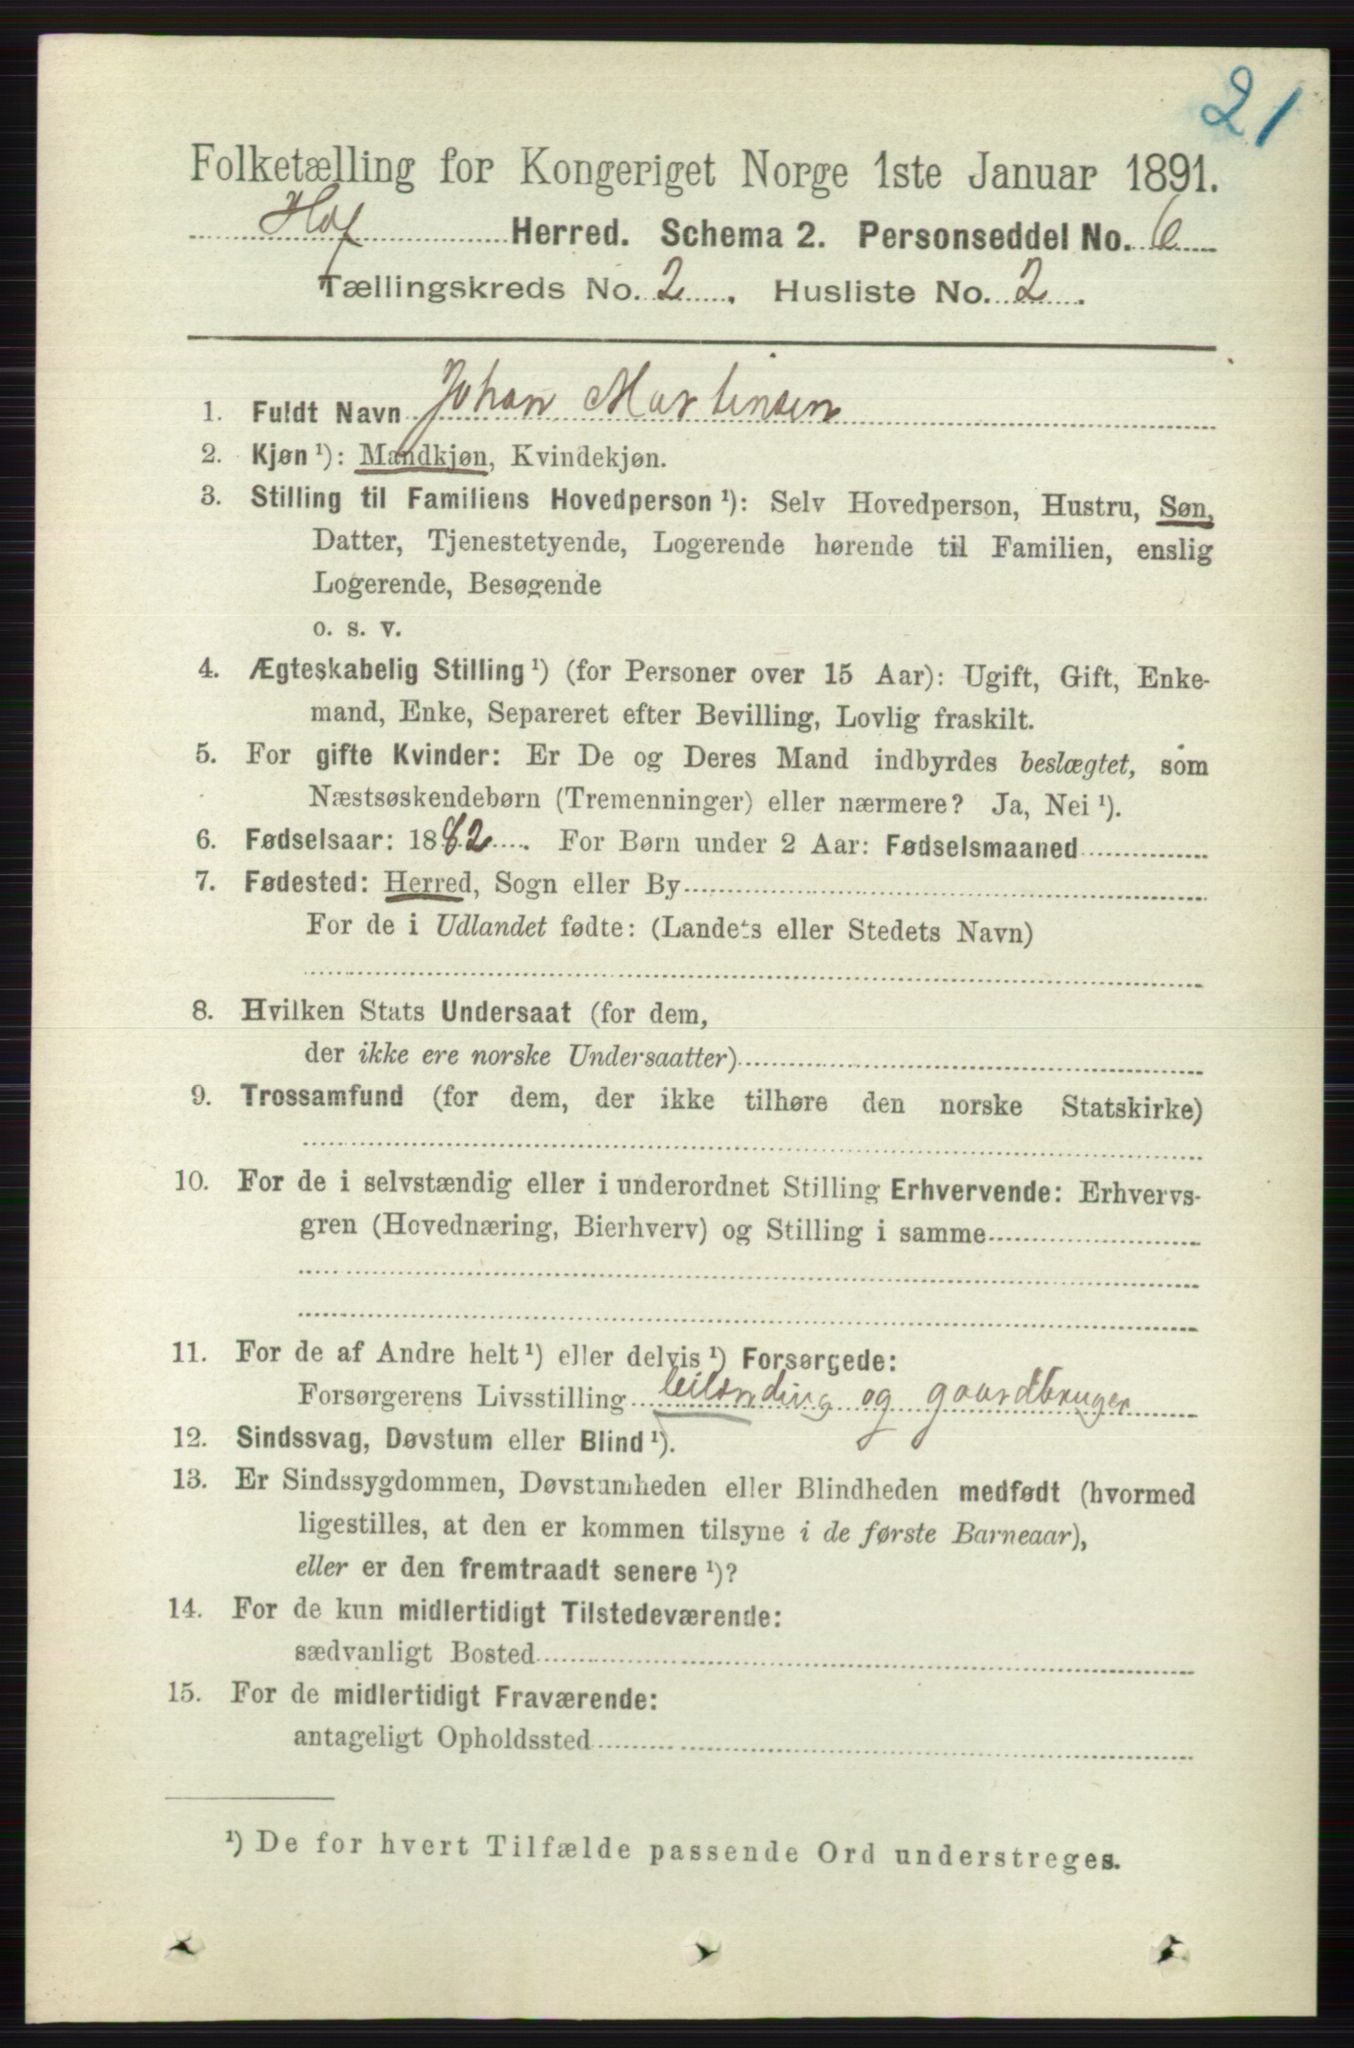 21
Folketælling for Kongeriget Norge 1ste Januar 1891.
Hof Herred. Schema 2. Personseddel No. 6
Tællingskreds No. 2. Husliste No. 2.
1. Fuldt Navn Johan Martinsen
2. Kjøn ¹): Mandkjøn, Kvindekjøn.
3. Stilling til Familiens Hovedperson ¹): Selv Hovedperson, Hustru, Søn,
Datter, Tjenestetyende, Logerende hørende til Familien, enslig
Logerende, Besøgende
o. s. v.
4. Ægteskabelig Stilling ¹) (for Personer over 15 Aar): Ugift, Gift, Enke-
mand, Enke, Separeret efter Bevilling, Lovlig fraskilt.
5. For gifte Kvinder: Er De og Deres Mand indbyrdes beslægtet, som
Næstsøskendebørn (Tremenninger) eller nærmere? Ja, Nei ¹).
6. Fødselsaar: 1882. For Børn under 2 Aar: Fødselsmaaned
7. Fødested: Herred, Sogn eller By
For de i Udlandet fødte: (Landets eller Stedets Navn)
8. Hvilken Stats Undersaat (for dem,
der ikke ere norske Undersaatter)
9. Trossamfund (for dem, der ikke tilhøre den norske Statskirke)
10. For de i selvstændig eller i underordnet Stilling Erhvervende: Erhvervs-
gren (Hovednæring, Bierhverv) og Stilling i samme
11. For de af Andre helt ¹) eller delvis ¹) Forsørgede:
Forsørgerens Livsstilling leilænding og gaardbruger
12. Sindssvag, Døvstum eller Blind ¹).
13. Er Sindssygdommen, Døvstumheden eller Blindheden medfødt (hvormed
ligestilles, at den er kommen tilsyne i de første Barneaar),
eller er den fremtraadt senere ¹)?
14. For de kun midlertidigt Tilstedeværende:
sædvanligt Bosted
15. For de midlertidigt Fraværende:
antageligt Opholdssted
¹) De for hvert Tilfælde passende Ord understreges.